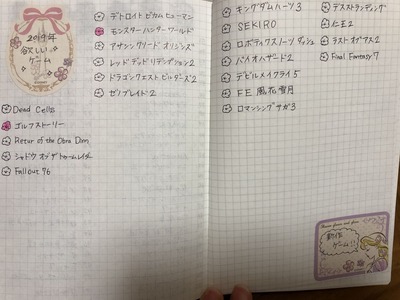 2019年
欲しい
ゲーム
デトロイト ビカム ヒューマン
モンスターハンターワールド
アサシン クリード オリジンズ
レッド デッド リデンプション2
ドラゴンクエスト ビルダーズ2
ゼノブレイド2
Dead Cells
ゴルフストーリー
Retur of the Obra Dinn
シャドウ オブ ザ トゥームレイダー
Fallout 76
キングダムハーツ3
SEKIRO
ロボティクスノーツ ダッシュ
バイオハザード2
デビルメイクライ5
FE 風花雪月
ロマンシングサガ3
デスストランディング
仁王2
ラスト オブ アス2
Final Fantasy7
新作
ゲーム!!